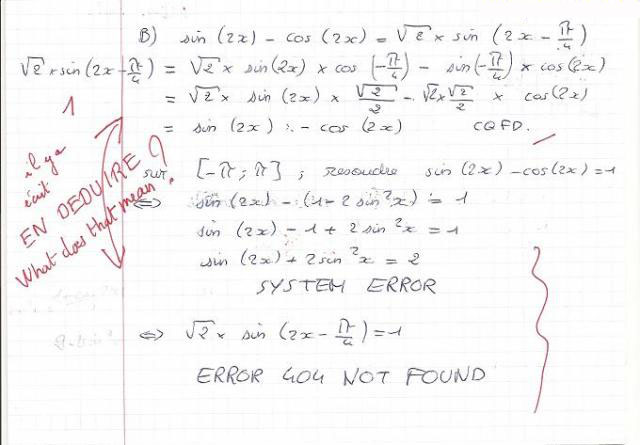 B) sin (2x) - cos (2x) = √2 × sin (2x - π/4)
√2 × sin(2x - π/4) = √2 × sin(2x) × cos(-π/4) - sin(-π/4) × cos(2x)
= √2 × sin (2x) × √2/2 - √2 × √2/2 × cos(2x)
1
= sin (2x) - cos (2x) CQFD.
il y a
écrit
EN DEDUIRE
What does that mean ?
sur [-π ; π] ; resoudre sin(2x) - cos(2x) = 1
⇔ sin (2x) - (1 - 2 sin²x) = 1
sin (2x) - 1 + 2 sin²x = 1
sin (2x) + 2 sin²x = 2
SYSTEM ERROR
⇔ √2 × sin (2x - π/4) = 1
ERROR 404 NOT FOUND